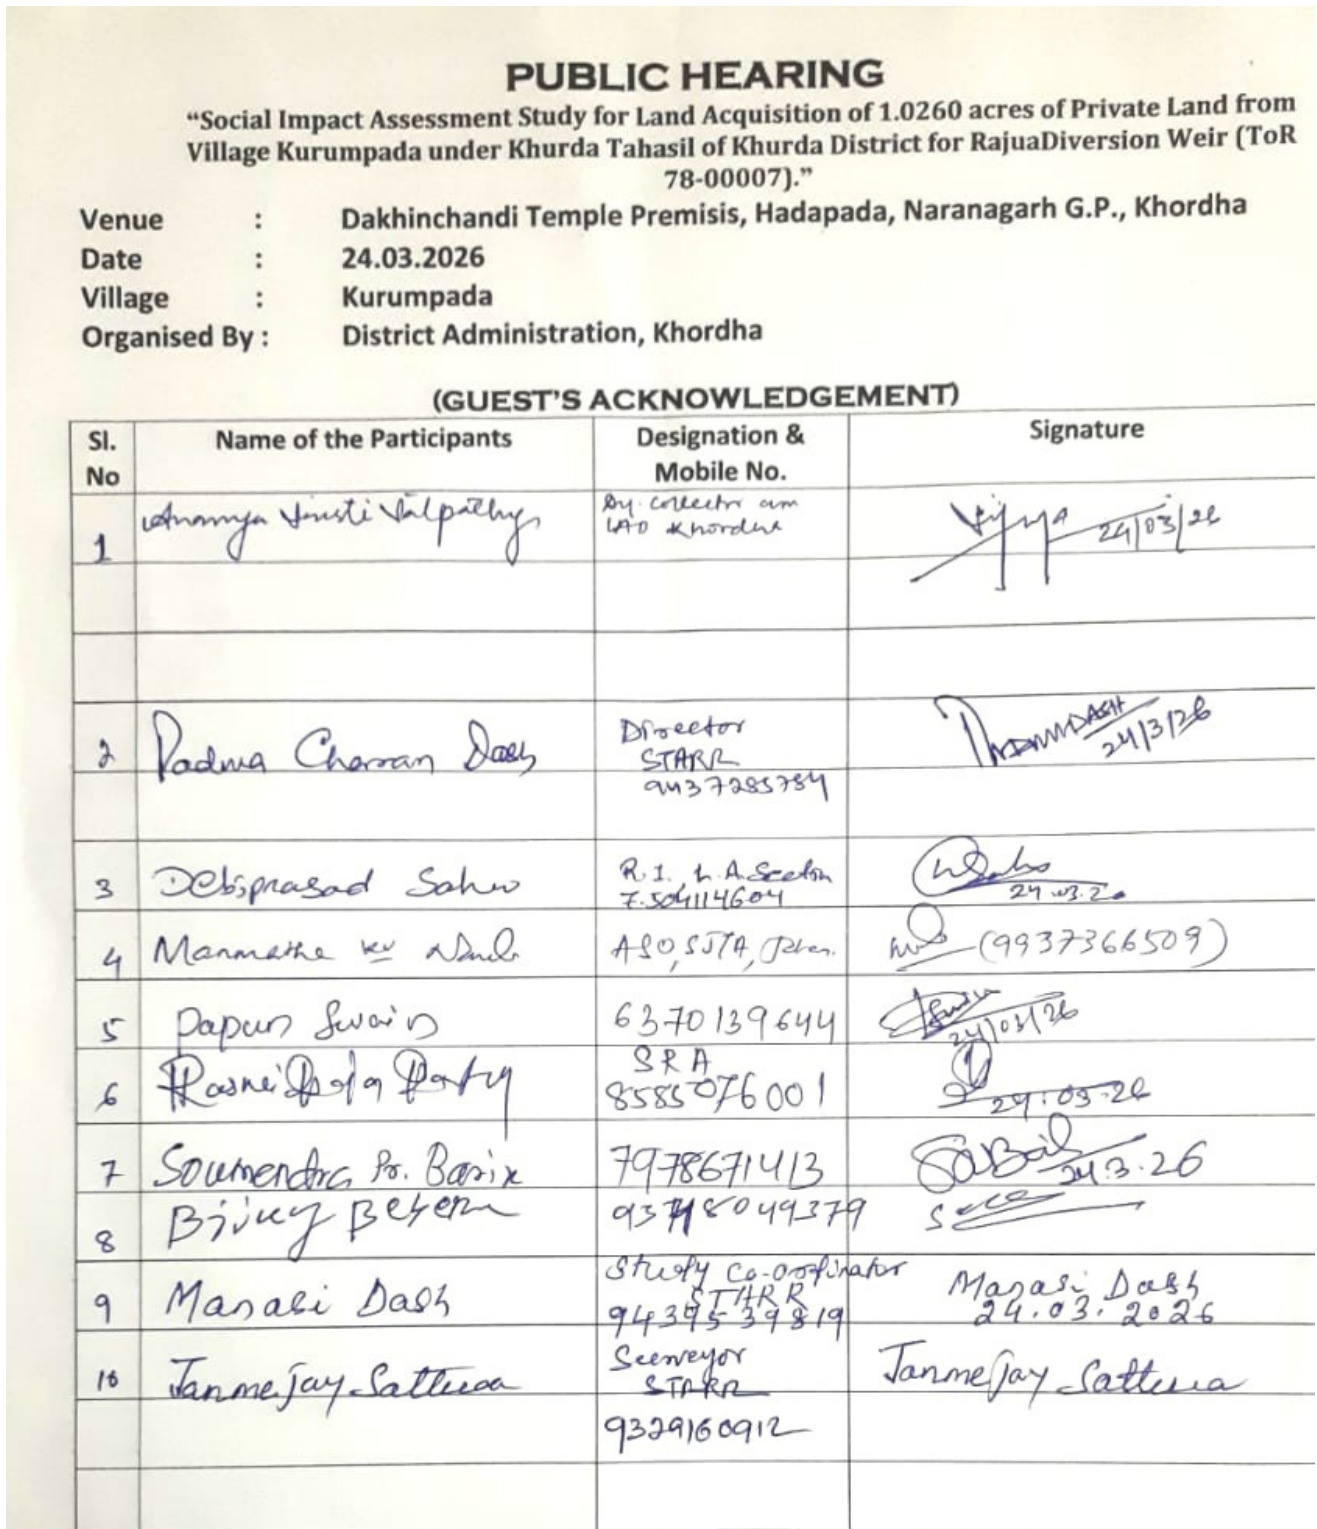 PUBLIC HEARING
“Social Impact Assessment Study for Land Acquisition of 1.0260 acres of Private Land from
Village Kurumpada under Khurda Tahasil of Khurda District for RajuaDiversion Weir (ToR
78-00007).”
Venue : Dakhinchandi Temple Premisis, Hadapada, Naranagarh G.P., Khordha
Date : 24.03.2026
Village : Kurumpada
Organised By : District Administration, Khordha
(GUEST'S ACKNOWLEDGEMENT)
Sl. No Name of the Participants Designation & Mobile No. Signature
1 Dy. Collector cum
LAO Khordha
24/03/26
2 Padma Charan Dash Director
STARR
9437285784
DASH
24/3/26
3 Debiprasad Sahu R.I. L.A. Section
7504114604
24.03.2
4 Manmatha ku ASO, SJTA, (9937366509)
5 Papun Swain 6370139644
24/03/26
6 SRA
8585076001
24.03.26
7 Soumendra Pr. Barik 7978671413
24.3.26
8 Bijay Behera
9 Manasi Dash Study Co-ordinator
STARR
9439539819
Manasi Dash
24.03.2026
10 Janmejay Sattua Seerveyor
STARR
9329160912
Janmejay Sattua